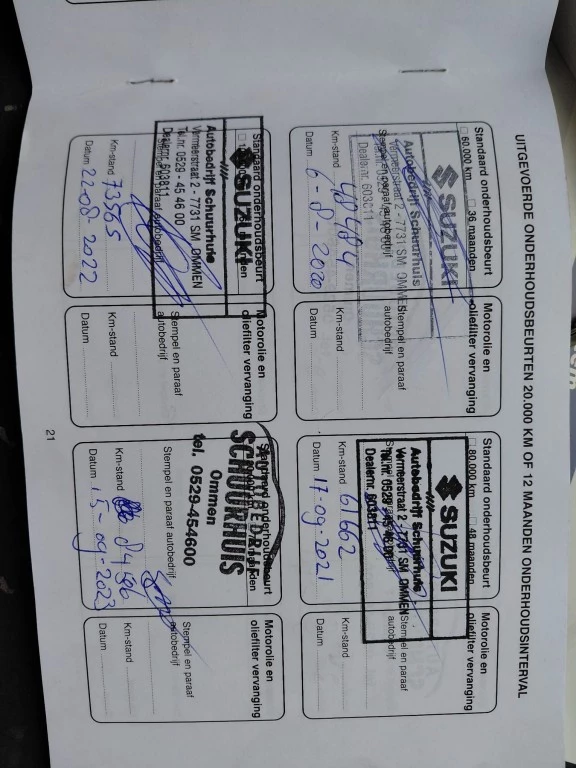 UITGEVOERDE ONDERHOUDSBEURTEN 20.000 KM OF 12 MAANDEN ONDERHOUDSINTERVAL
Standaard onderhoudsbeurt
□ 60.000 km □ 36 maanden
SUZUKI
Autobedrijf Schuurhuis
Vermeerstraat 2 - 7731 SM OMMEN
Dealernr. 603811
Km-stand 48484
Datum 6-8-2020
Motorolie en
oliefilter vervanging
Stempel en paraaf
autobedrijf
Km-stand
Datum
Standaard onderhoudsbeurt
□ 80.000 km 48 maanden
SUZUKI
Autobedrijf Schuurhuis
Vermeerstraat 2 - 7731 SM OMMEN
Tel.nr. 0529 - 45 46 00
Dealernr. 603811
Km-stand 61662
Datum 17-09-2021
Motorolie en
oliefilter vervanging
Stempel en paraaf
autobedrijf
Km-stand
Datum
Standaard onderhoudsbeurt
SUZUKI
Autobedrijf Schuurhuis
Vermeerstraat 2 - 7731 SM OMMEN
Tel.nr. 0529 - 45 46 00
Dealernr. 603811
Km-stand 73565
Datum 22-08-2022
Motorolie en
oliefilter vervanging
Stempel en paraaf
autobedrijf
Km-stand
Datum
Standaard onderhoudsbeurt
AUTOBEDRIJF
SCHUURHUIS
Ommen
tel. 0529-454600
Stempel en paraaf autobedrijf
Km-stand 84186
Datum 15-09-2023
Motorolie en
oliefilter vervanging
Stempel en paraaf
autobedrijf
Km-stand
Datum
21